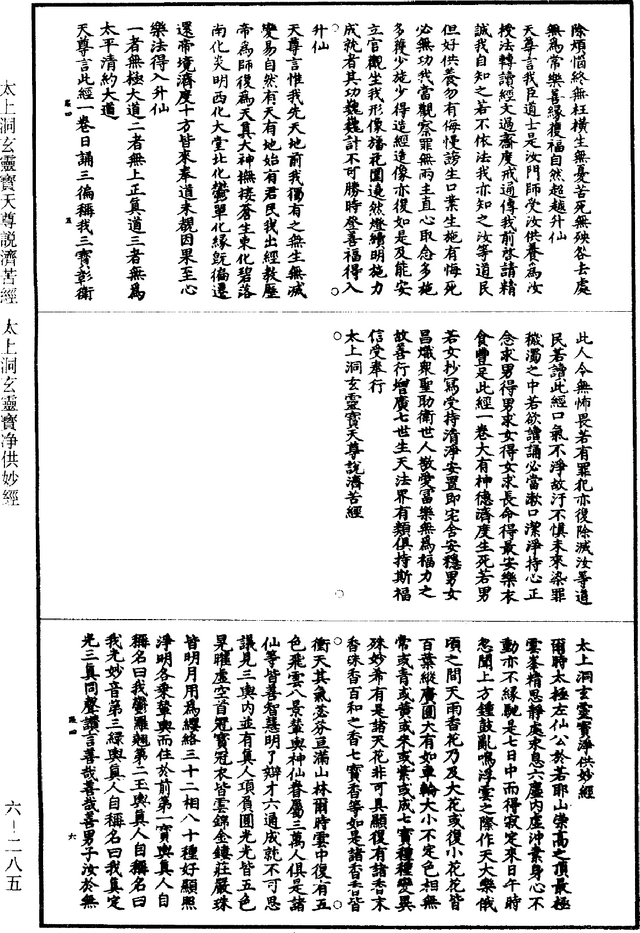 太上洞玄靈寶天尊說濟苦經　太上洞玄靈寶淨供妙經
六－二八五
除煩惱終無枉橫生無憂苦死無殃咎去處
無為常樂善緣獲福自然超越升仙
天尊言我臣道士是汝門師受汝供養為汝
授法轉讀經文過齋度戒通傳我前啓請精
誠我自知之若不依法我亦知之汝等道民
但好供養勿有侮慢謗生口業生施有悔死
必無功我當觀察罪無兩主直心取念多施
多獲少施少得造經造像亦復如是及能安
立官觀坐我形像旛花圍遶然燈續明施力
成就者其功巍巍計不可勝時登善福得入
升仙
天尊言惟我先天地前我獨有之無生無滅
變易自然有天有地始有君民我出經教歷
帝為師復為天真大神撫接蒼生東化碧落
南化炎明西化大堂北化鬱單化緣旣徧遷
還帝境濟度十方皆來奉道未覩因果至心
樂法得入升仙
一者無極大道二者無上正真道三者無為
太平清約大道
天尊言此經一卷日誦三徧稱我三寶彰衛
此人令無怖畏若有罪犯亦復除滅汝等道
民若讀此經口氣不淨故汙不慎未來染罪
穢濁之中若欲讀誦必當漱口潔淨持心正
念求男得男求女得女求長命得最安樂衣
食豐足此經一卷大有神德濟度生死若男
若女抄寫受持清淨安置即宅舍安穩男女
昌熾衆聖助衛世人敬愛富樂無為福力之
故善行增廣七世生天法界有類俱持斯福
信受奉行
太上洞玄靈寶天尊說濟苦經
太上洞玄靈寶淨供妙經
爾時太極左仙公於若耶山崇高之頂最極
雲峯精思靜處求息六塵內虛沖素身心不
動亦不緣馳是七日中而得寂定來日午時
忽聞上方鍾鼓亂鳴浮雲之際作天大樂俄
頃之間天雨香花乃及大花或復小花花皆
百葉縱廣圓大有如車輪大小不定色相無
常或青或黃或朱或紫或成七寶種種變異
殊妙希有是諸天花非可具顯復有諸香末
香味香百和之香七寶香等如是諸香香皆
衝天其氣苾芬亘滿山林爾時雲中復有五
色飛雲八景輦輿神仙眷屬三萬人俱是諸
仙等皆善智慧明了辯才六通成就不可思
議見三輿內並有真人項負圓光光皆五色
晃曜虛空首冠寶冠衣皆雲錦金鏤莊嚴珠
皆明月用為纓絡三十二相八十種好顯照
淨明各乘輦輿而住於前第一寶輿真人自
稱名曰我鬱羅翹第二玉輿真人自稱名曰
我光妙音第三綠輿真人自稱名曰我真定
光三真同聲讚言善哉善哉善男子汝於無